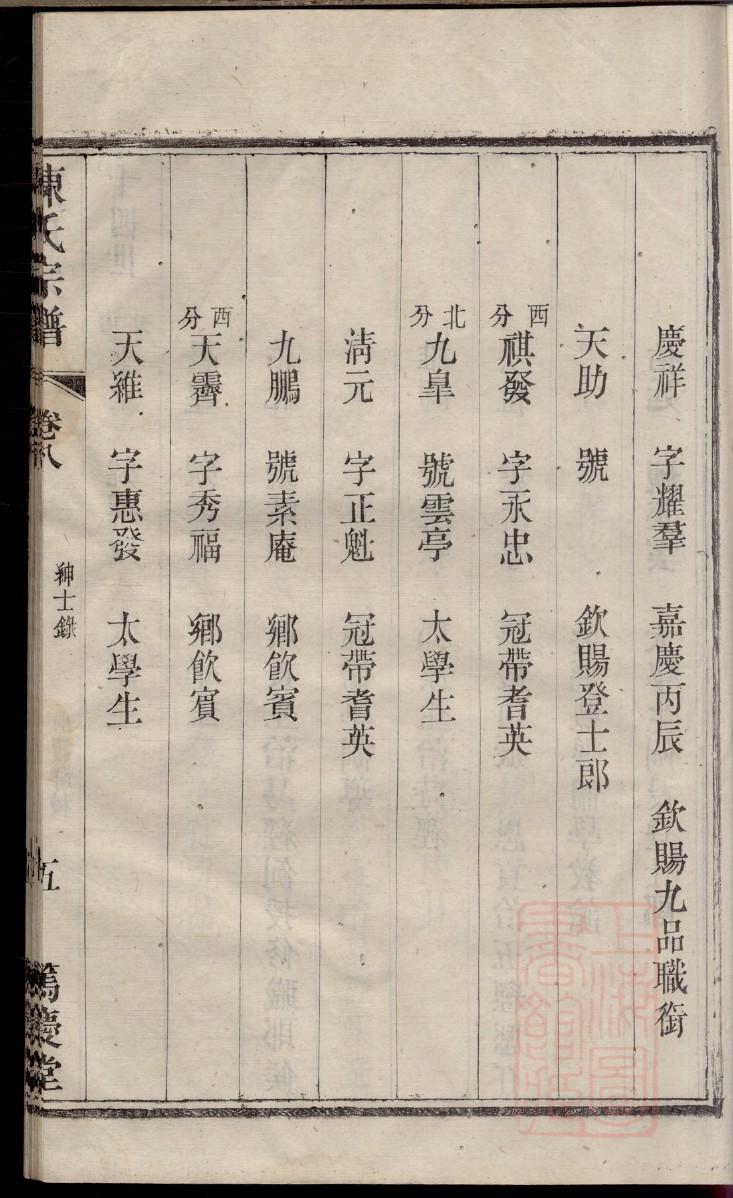 慶祥　字耀羣　嘉慶丙辰　欽賜九品職銜
天助　號　欽賜登士郎
西分　祺發　字永忠　冠帶耆英
北分　九臯　號雲亭　太學生
淸元　字正魁　冠帶耆英
九鵬　號素庵　鄉飮賓
西分　天霽　字秀福　鄉飮賓
天維　字惠發　太學生
陳氏宗譜　卷八　紳士錄　五　篤慶堂
上海圖書館藏